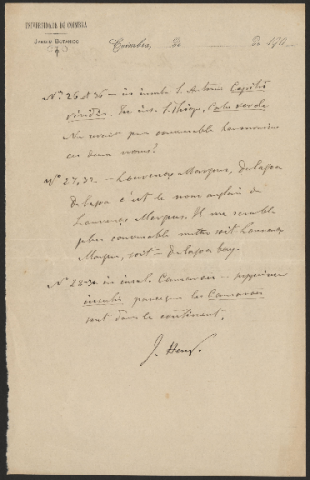 UNIVERSIDADE DE COIMBRA
JARDIM BOTANICO
Coimbra, de de 190
Nº 26 — in insula S. Antonio
viridis. S. Thiago, Cabo verde
Ne serait pas convenable
ces deux noms?
Nº 27, 32. — Lourenço Marques, Delagoa
Delagoa c'est le nom anglais de
Lourenço Marques. Il me semble
plus convenable mettre soit Lourenço
Marques, soit — Delagoa bay.
Nº in insul. — supprimer
insulis parceque les
sont dans le continent.
J. Henr.